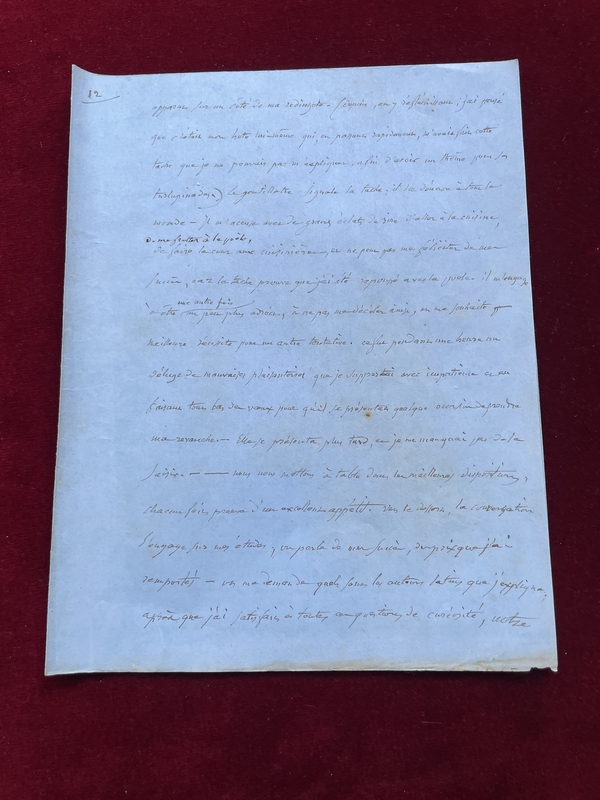 82
apparue sur un côté de ma redingote. Depuis, en y réfléchissant, j'ai pensé
que c'était mon hôte lui-même qui, en passant rapidement, m'avait fait cette
tache que je ne pouvais pas m'expliquer, afin d'avoir un thème pour ses
le gentillâtre signale la tache, il la dénonce à tout le
monde – il m'accuse avec de grands éclats de rire d'aller à la cuisine,
de me frotter à la poêle,
de faire la cour aux cuisinières – et ne peut pas me féliciter de mes
succès, car la tache prouve que j'ai été repoussé avec la poêle. il m'engage
une autre fois
à être un peu plus adroit, à ne pas me décéler ainsi, on me souhaite
meilleure réussite pour une autre tentative. enfin pendant une heure un
déluge de mauvaises plaisanteries que je supportai avec impatience et en
faisant tout bas des vœux pour qu'il se présentât quelque occasion de prendre
ma revanche. – Elle se présenta plus tard, et je ne manquai pas de la
saisir. – – nous nous mettons à table dans les meilleures dispositions,
chacun fait preuve d'un excellent appétit. vers le dessert, la conversation
s'engage sur mes études, on parle de mes succès, des prix que j'ai
remportés – on me demande quels sont les auteurs latins que j'explique,
après que j'ai satisfait à toutes ces questions de curiosité, notre